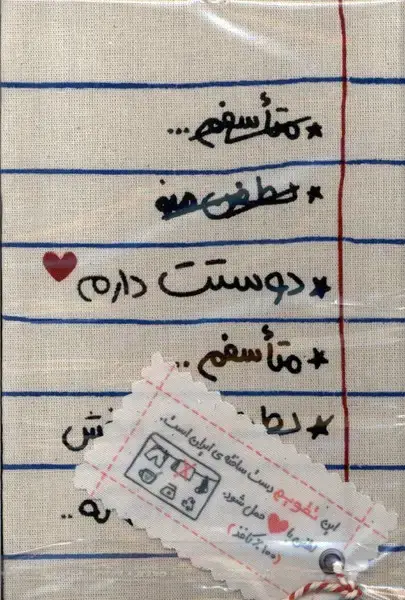 ★ متأسفم...
★ لطفن منو
★ دوستت دارم
★ متأسفم ..
★ لطفن
این تقویم دست ساخته ی ایران است.
لطفن با ♥ حمل شود.
(۱۰۰٪ کاغذ)